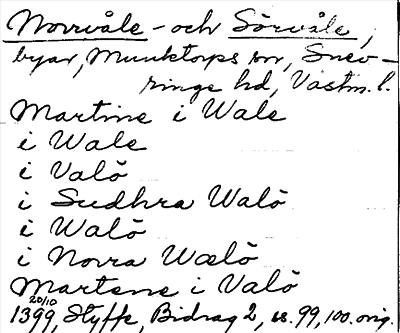 Norrvåle - och Sörvåle,
byar, Munktorps sn, Snev-
ringe hd, Västm. l.
Martine i Wale
i Wale
i Valö
i Sudhra Walö
i Walö
i Norra Wælö
Martene i Valö
20/10
1399, Styffe, Bidrag 2, s. 99, 100. orig.